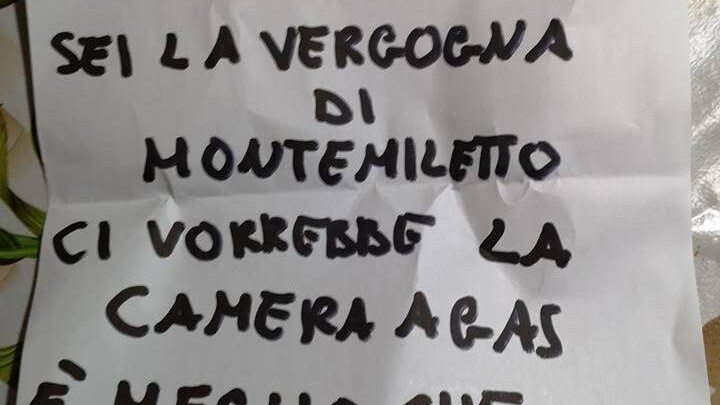 SEI LA VERGOGNA
DI
MONTEMILETTO
CI VORREBBE LA
CAMERA A GAS
È MEGLIO CHE